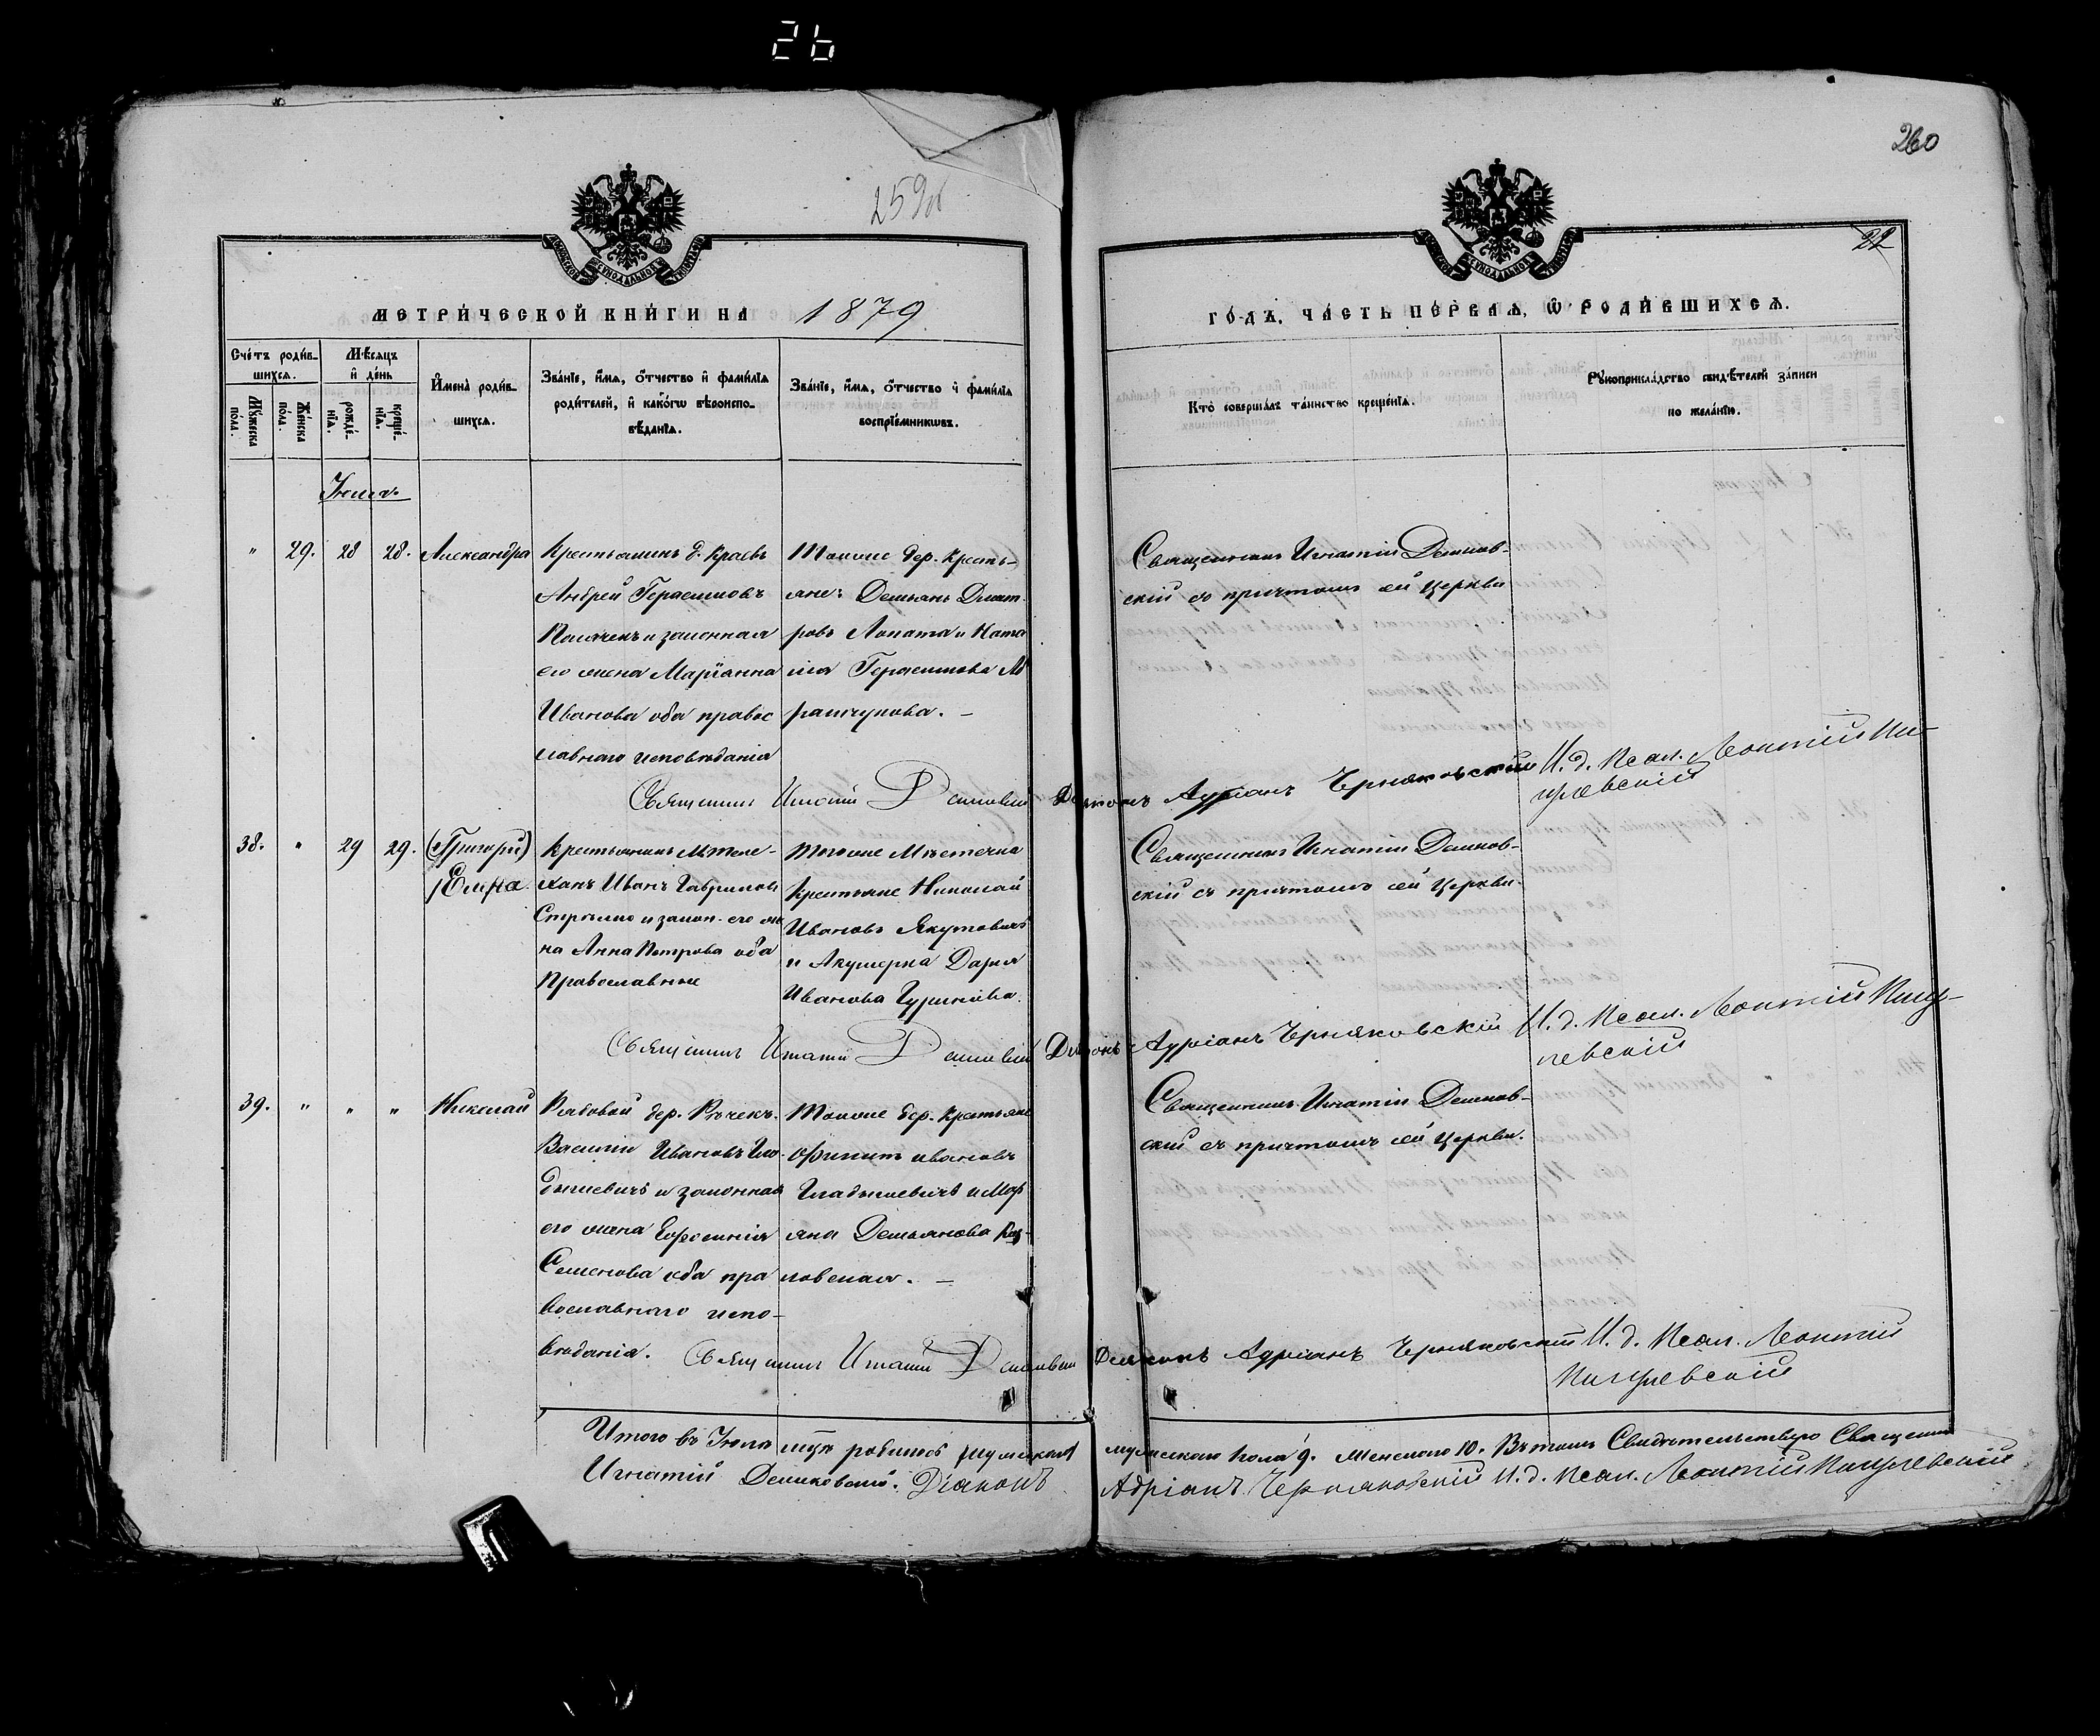 26
260
259об
22
МЕТРИ́ЧЕСКОЙ КНИ́ГИ НА 1879
ГО́ДЪ, ЧА́СТЬ ПЕ́РВАѦ, Ѡ҆ РОДИ́ВШИХСѦ.
Сче́тъ роди́вшихсѧ.
Мꙋ́жеска по́ла.
Же́нска по́ла.
Мѣ́сяцъ и҆ де́нь
рожде́нїѧ.
креще́нїѧ.
И҆мена̀ роди́вшихсѧ.
Зва́нїе, и҆́мѧ, ѻ҆́тчество и҆ фами́лїѧ
роди́телей, и҆ како́гѡ вѣроиспо-
вѣ́данїѧ.
Зва́нїе, и҆́мѧ, ѻ҆́тчество и҆ фами́лїѧ
воспрїе́мникѡвъ.
Кто̀ соверша́лъ та́инство креще́нїѧ.
Рꙋкоприкла́дство свидѣ́телей за́писи
по жела́нїю.
Іюля.
" 29. 28 28. Александра
Крестьянинъ д. Краевъ
Андрей Герасимовъ
и законная
его жена Маріанна
Иванова оба правос
лавнаго исповѣданія
Тойже дер. кресть-
яне: Демьянъ Дмит
ровъ Лопата и Ната
лія Герасимова
Священникъ Игнатій Демков-
скій съ причтомъ сей церкви
Священникъ Игнатій Демковскій Діаконъ Адріанъ Черняковскій И. д. Псал. Леонтій Пи-
38. " 29 29. (Григорій)
Елена.
Крестьянинъ М. Теле-
ханъ Иванъ Гавриловъ
и закон. его же
на Анна Петрова оба
Православные
Тогоже Мѣстечка
Крестьяне Николай
Ивановъ Якутовичъ
и Акушерка Дарія
Иванова Гуринова.
Священникъ Игнатій Демков-
скій съ причтомъ сей церкви.
Священникъ Игнатій Демковскій Діаконъ Адріанъ Черняковскій И. д. Псал. Леонтій
39. " " " Николай
Рядовой дер. Рѣчекъ.
Василій Ивановъ Гла-
дышевичъ и законная
его жена Ефросинія
Семенова оба пра
вославнаго испо-
вѣданія.
Тойже дер. Крестьяне
Ивановъ
Гладышевичъ и Мар
яна Демьянова
Священникъ Игнатій Демков-
скій съ причтомъ сей церкви.
Священникъ Игнатій Демковскій Діаконъ Адріанъ Черняковскій И. д. Псал. Леонтій
Итого въ Іюлѣ м-цѣ родилось мужскаго пола 9. Женскаго 10. Въ томъ Свидѣтельствую Священникъ
Игнатій Демковскій. Діаконъ Адріанъ Черняковскій И. д. Псал. Леонтій